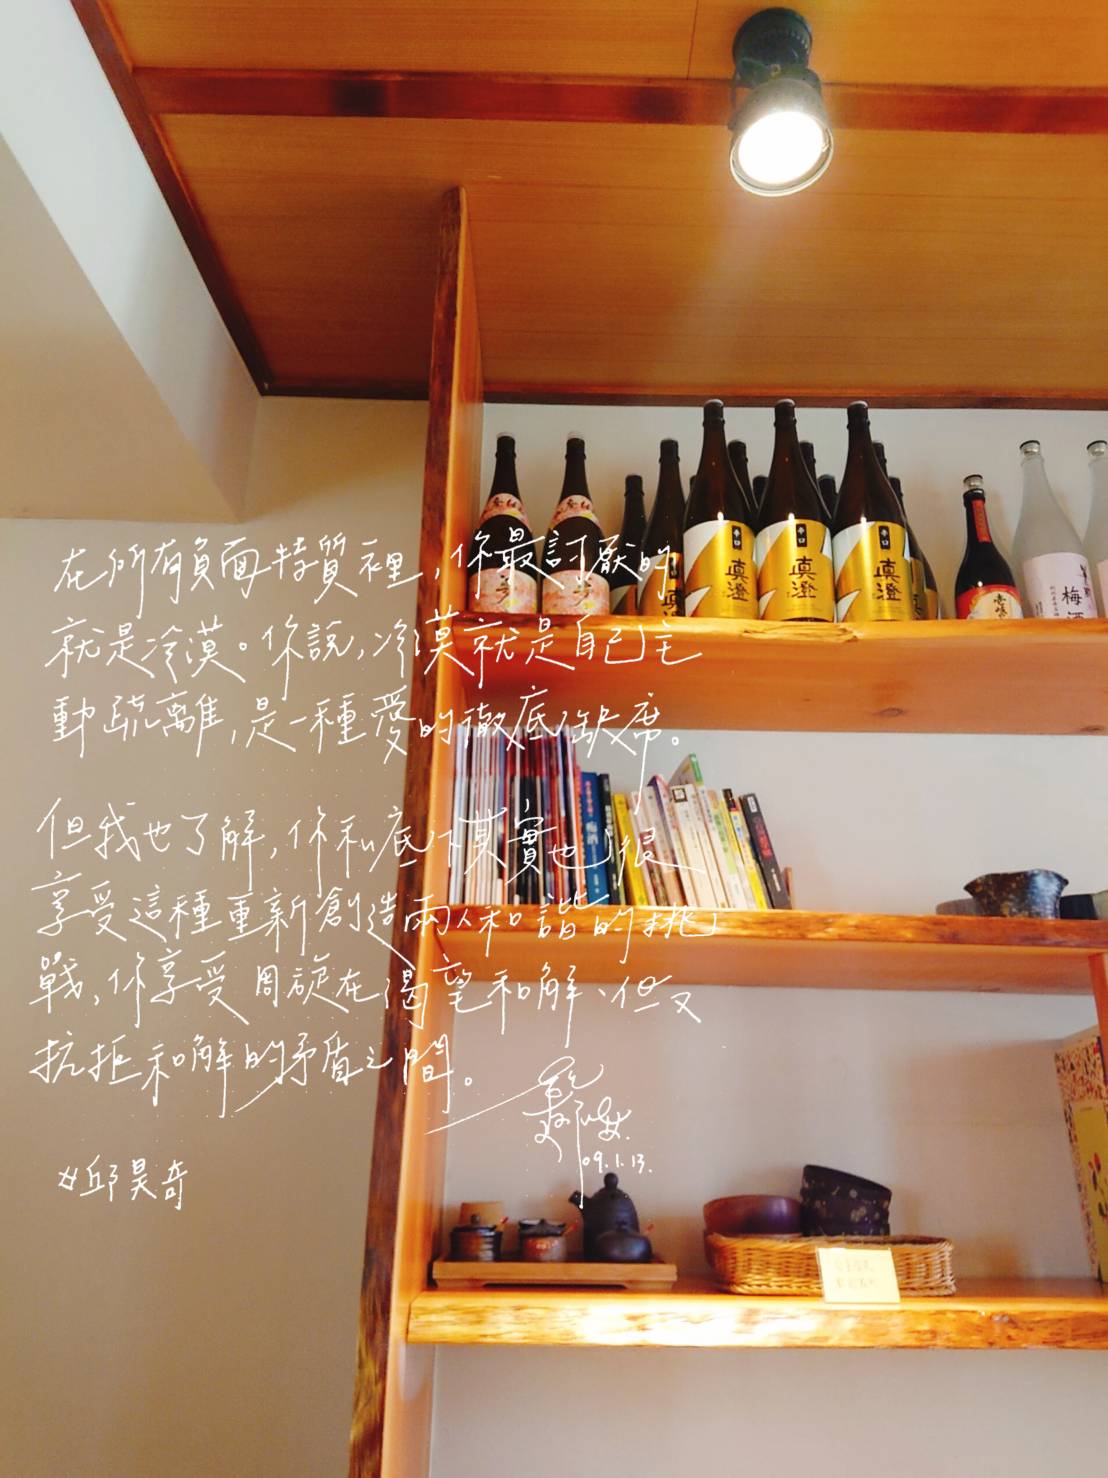 在所有負面特質裡,你最討厭的
就是冷漠。你說,冷漠就是自己主
動疏離,是一種愛的徹底缺席。
但我也了解,你私底下其實也很
享受這種重新創造兩人和諧的挑
戰,你享受周旋在渴望和解、但又
抗拒和解的矛盾之間。
09.1.13.
#邱昊奇
辛口
真澄
辛口
真澄
辛口
真澄
梅酒